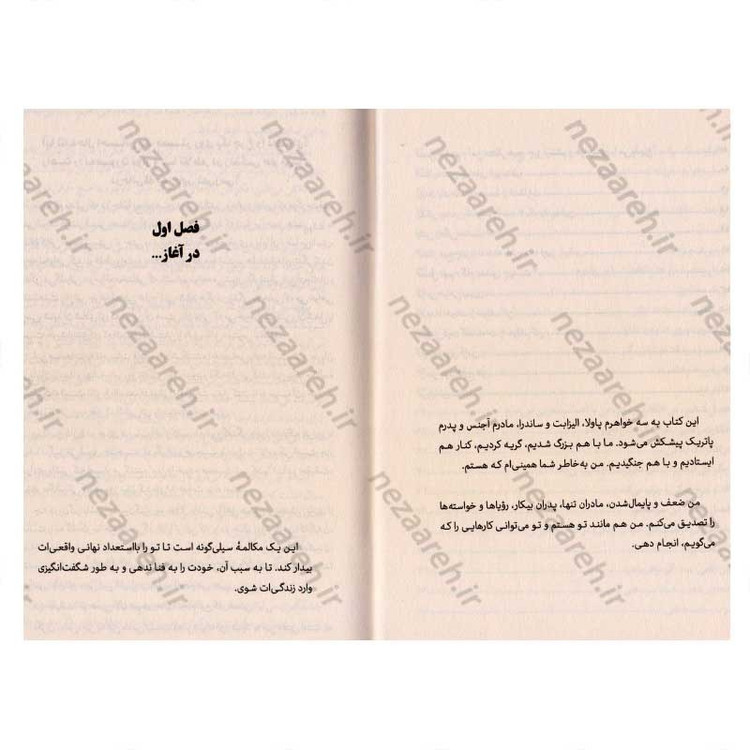 این کتاب به سه خواهرم پاولا، الیزابت و ساندرا، مادرم آجنس و پدرم
پاتریک پیشکش می‌شود. ما با هم بزرگ شدیم، گریه کردیم، کنار هم
ایستادیم و با هم جنگیدیم. من به‌خاطر شما همینی‌ام که هستم.
من ضعف و پایمال‌شدن، مادران تنها، پدران بیکار، رؤیاها و خواسته‌ها
را تصدیق می‌کنم. من هم مانند تو هستم و تو می‌توانی کارهایی را که
می‌گویم، انجام دهی.
فصل اول
در آغاز...
این یک مکالمهٔ سیلی‌گونه است تا تو را بااستعداد نهانی واقعی‌ات
بیدار کند. تا به سبب آن، خودت را به فنا ندهی و به طور شگفت‌انگیزی
وارد زندگی‌ات شوی.
nezaareh.ir
nezaareh.ir
nezaareh.ir
nezaareh.ir
nezaareh.ir
nezaareh.ir
nezaareh.ir
nezaareh.ir